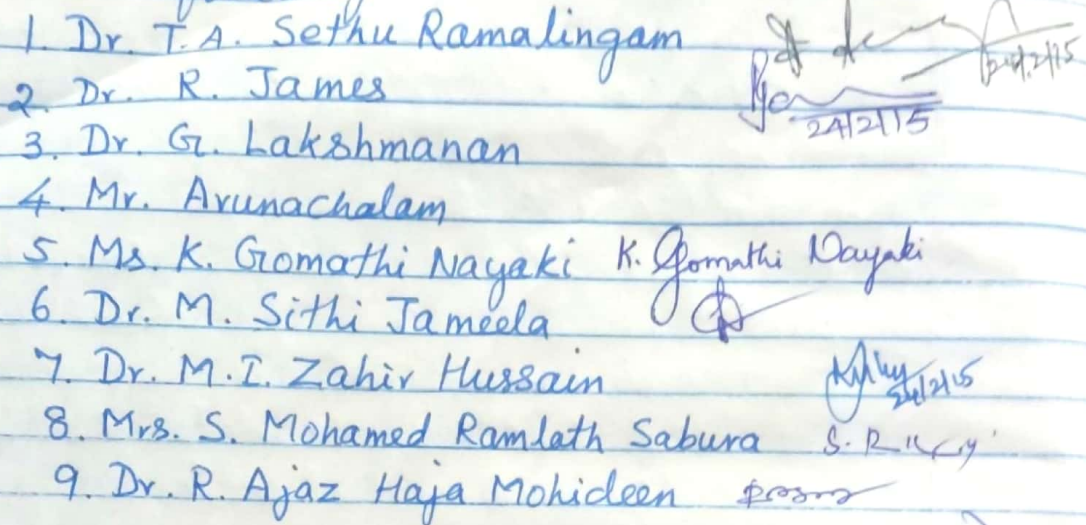 1. Dr. T. A. Sethu Ramalingam 24/2/15
2. Dr. R. James 24/2/15
3. Dr. G. Lakshmanan
4. Mr. Arunachalam
5. Ms. K. Gomathi Nayaki K. Gomathi Nayaki
6. Dr. M. Sithi Jameela
7. Dr. M. I. Zahir Hussain 24/2/15
8. Mrs. S. Mohamed Ramlath Sabura
9. Dr. R. Ajaz Haja Mohideen